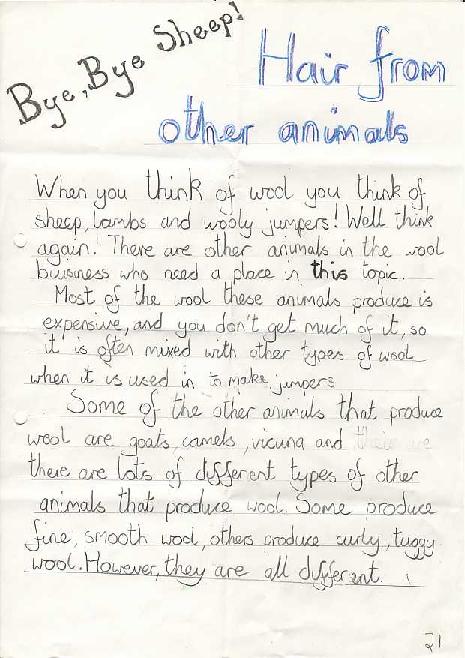 Bye, Bye Sheep!
Hair from
other animals
When you think of wool you think of
sheep, lambs and wooly jumpers! Well think
again. There are other animals in the wool
buisness who need a place in this topic.
Most of the wool these animals produce is
expensive, and you don't get much of it, so
it is often mixed with other types of wool
when it is used in to make jumpers
Some of the other animals that produce
wool are goats, camels, vicuna and their are
there are lots of different types of other
animals that produce wool. Some produce
fine, smooth wool, others produce curly, tuggy
wool. However, they are all different.
21